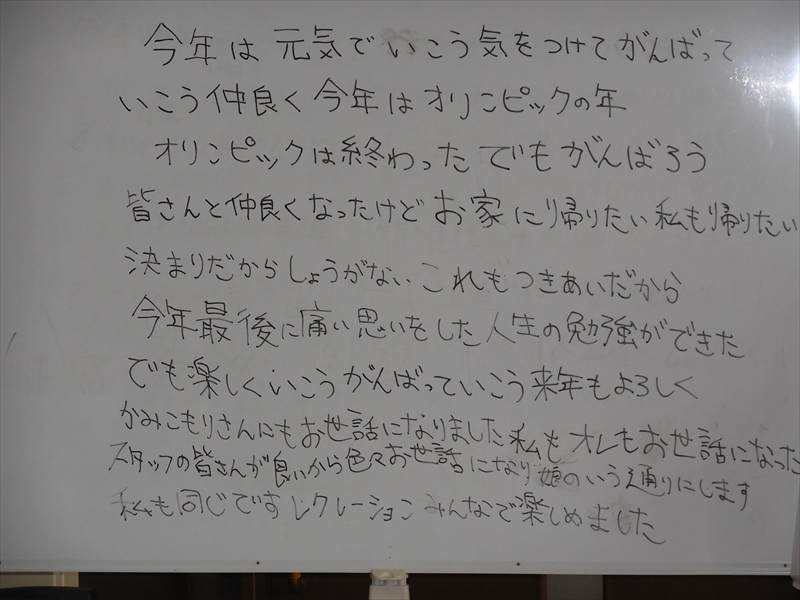 今年は元気でいこう気をつけてがんばって
いこう仲良く今年はオリンピックの年
オリンピックは終わったでもがんばろう
皆さんと仲良くなったけどお家に帰りたい私も帰りたい
決まりだからしょうがないこれもつきあいだから
今年最後に痛い思いをした人生の勉強ができた
でも楽しくいこうがんばっていこう来年もよろしく
かみこもりさんにもお世話になりました私もオレもお世話になった
スタッフの皆さんが良いから色々お世話になり娘のいう通りにします
私も同じですレクレーションみんなで楽しめました